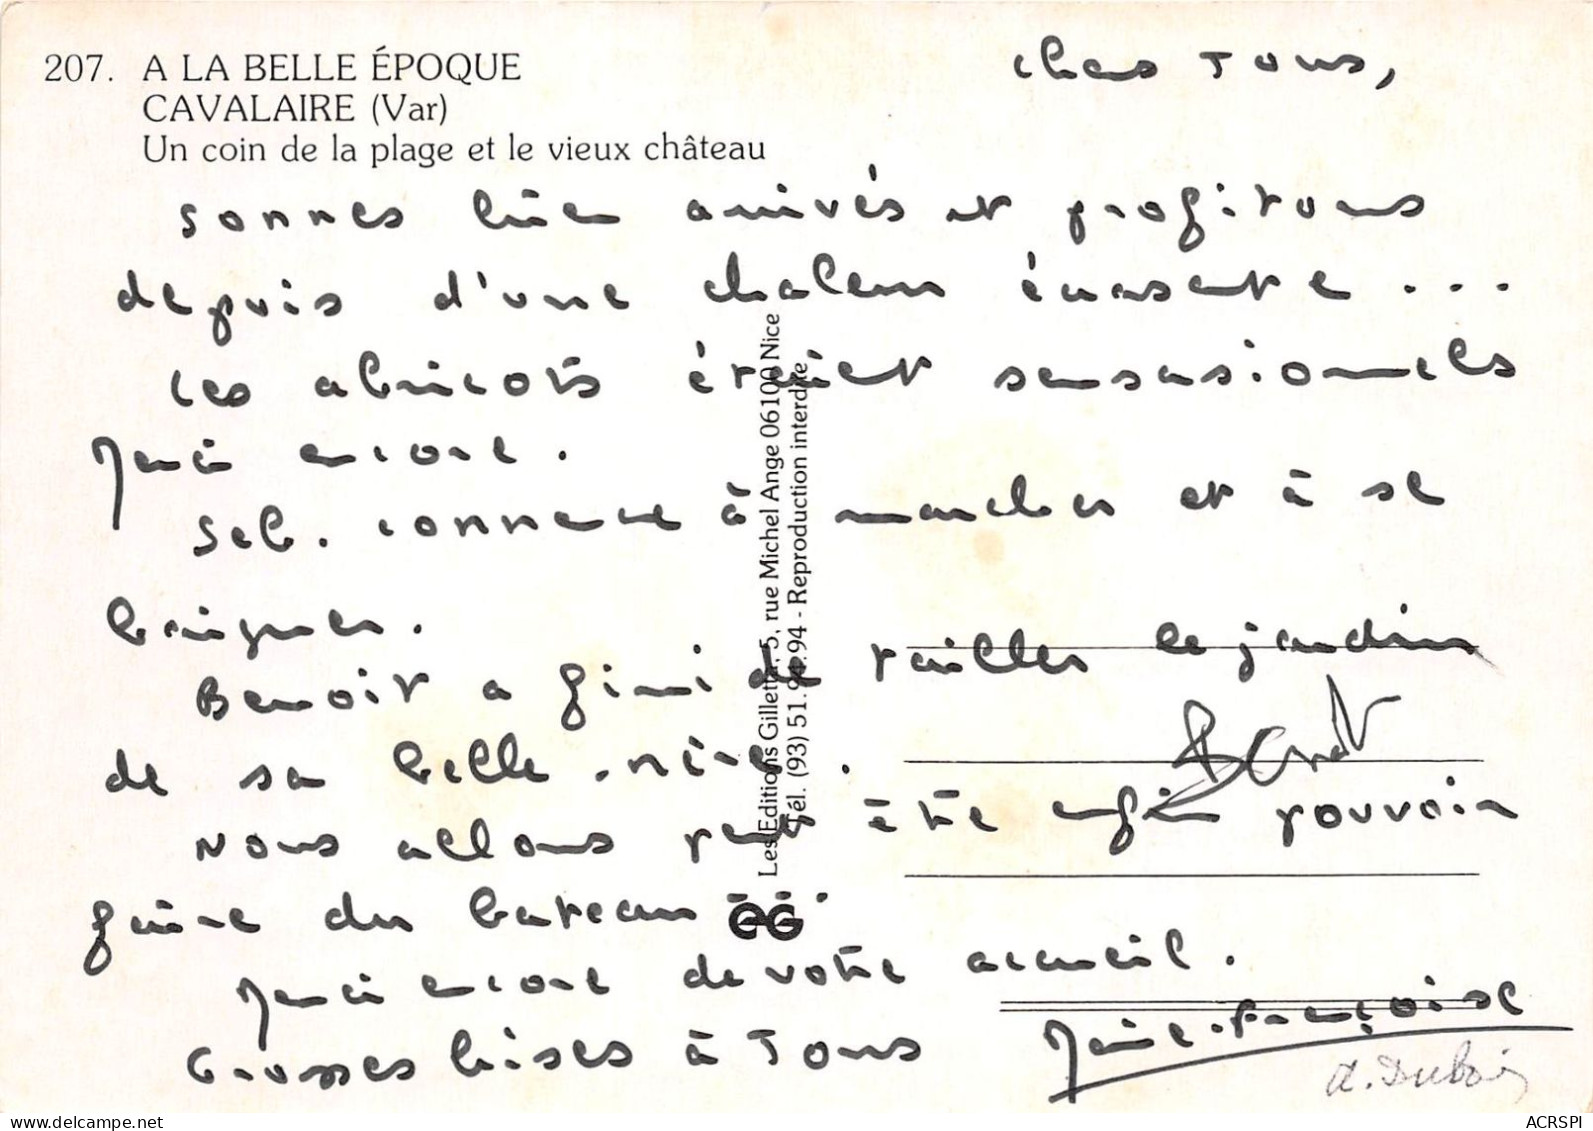 207. A LA BELLE ÉPOQUE
CAVALAIRE (Var)
Un coin de la plage et le vieux château
Chers Tous,
sommes bien arrivés et profitons
depuis d'une chaleur écrasante ...
Les abricots étaient sensasionnels
Merci encore.
Seb. commence à marcher et à se
baigner.
Benoit a fini de tailler le jardin
de sa belle-mère.
Nous allons peut être enfin pouvoir
faire du bateau ...
Merci encore de votre accueil.
Grosses bises à Tous Marie-Françoise
Benoit
d. Dubois
Les Editions Gilletta, 5, rue Michel Ange 06100 Nice
Tél. (93) 51.94.94 - Reproduction interdite
GG
ACRSPI